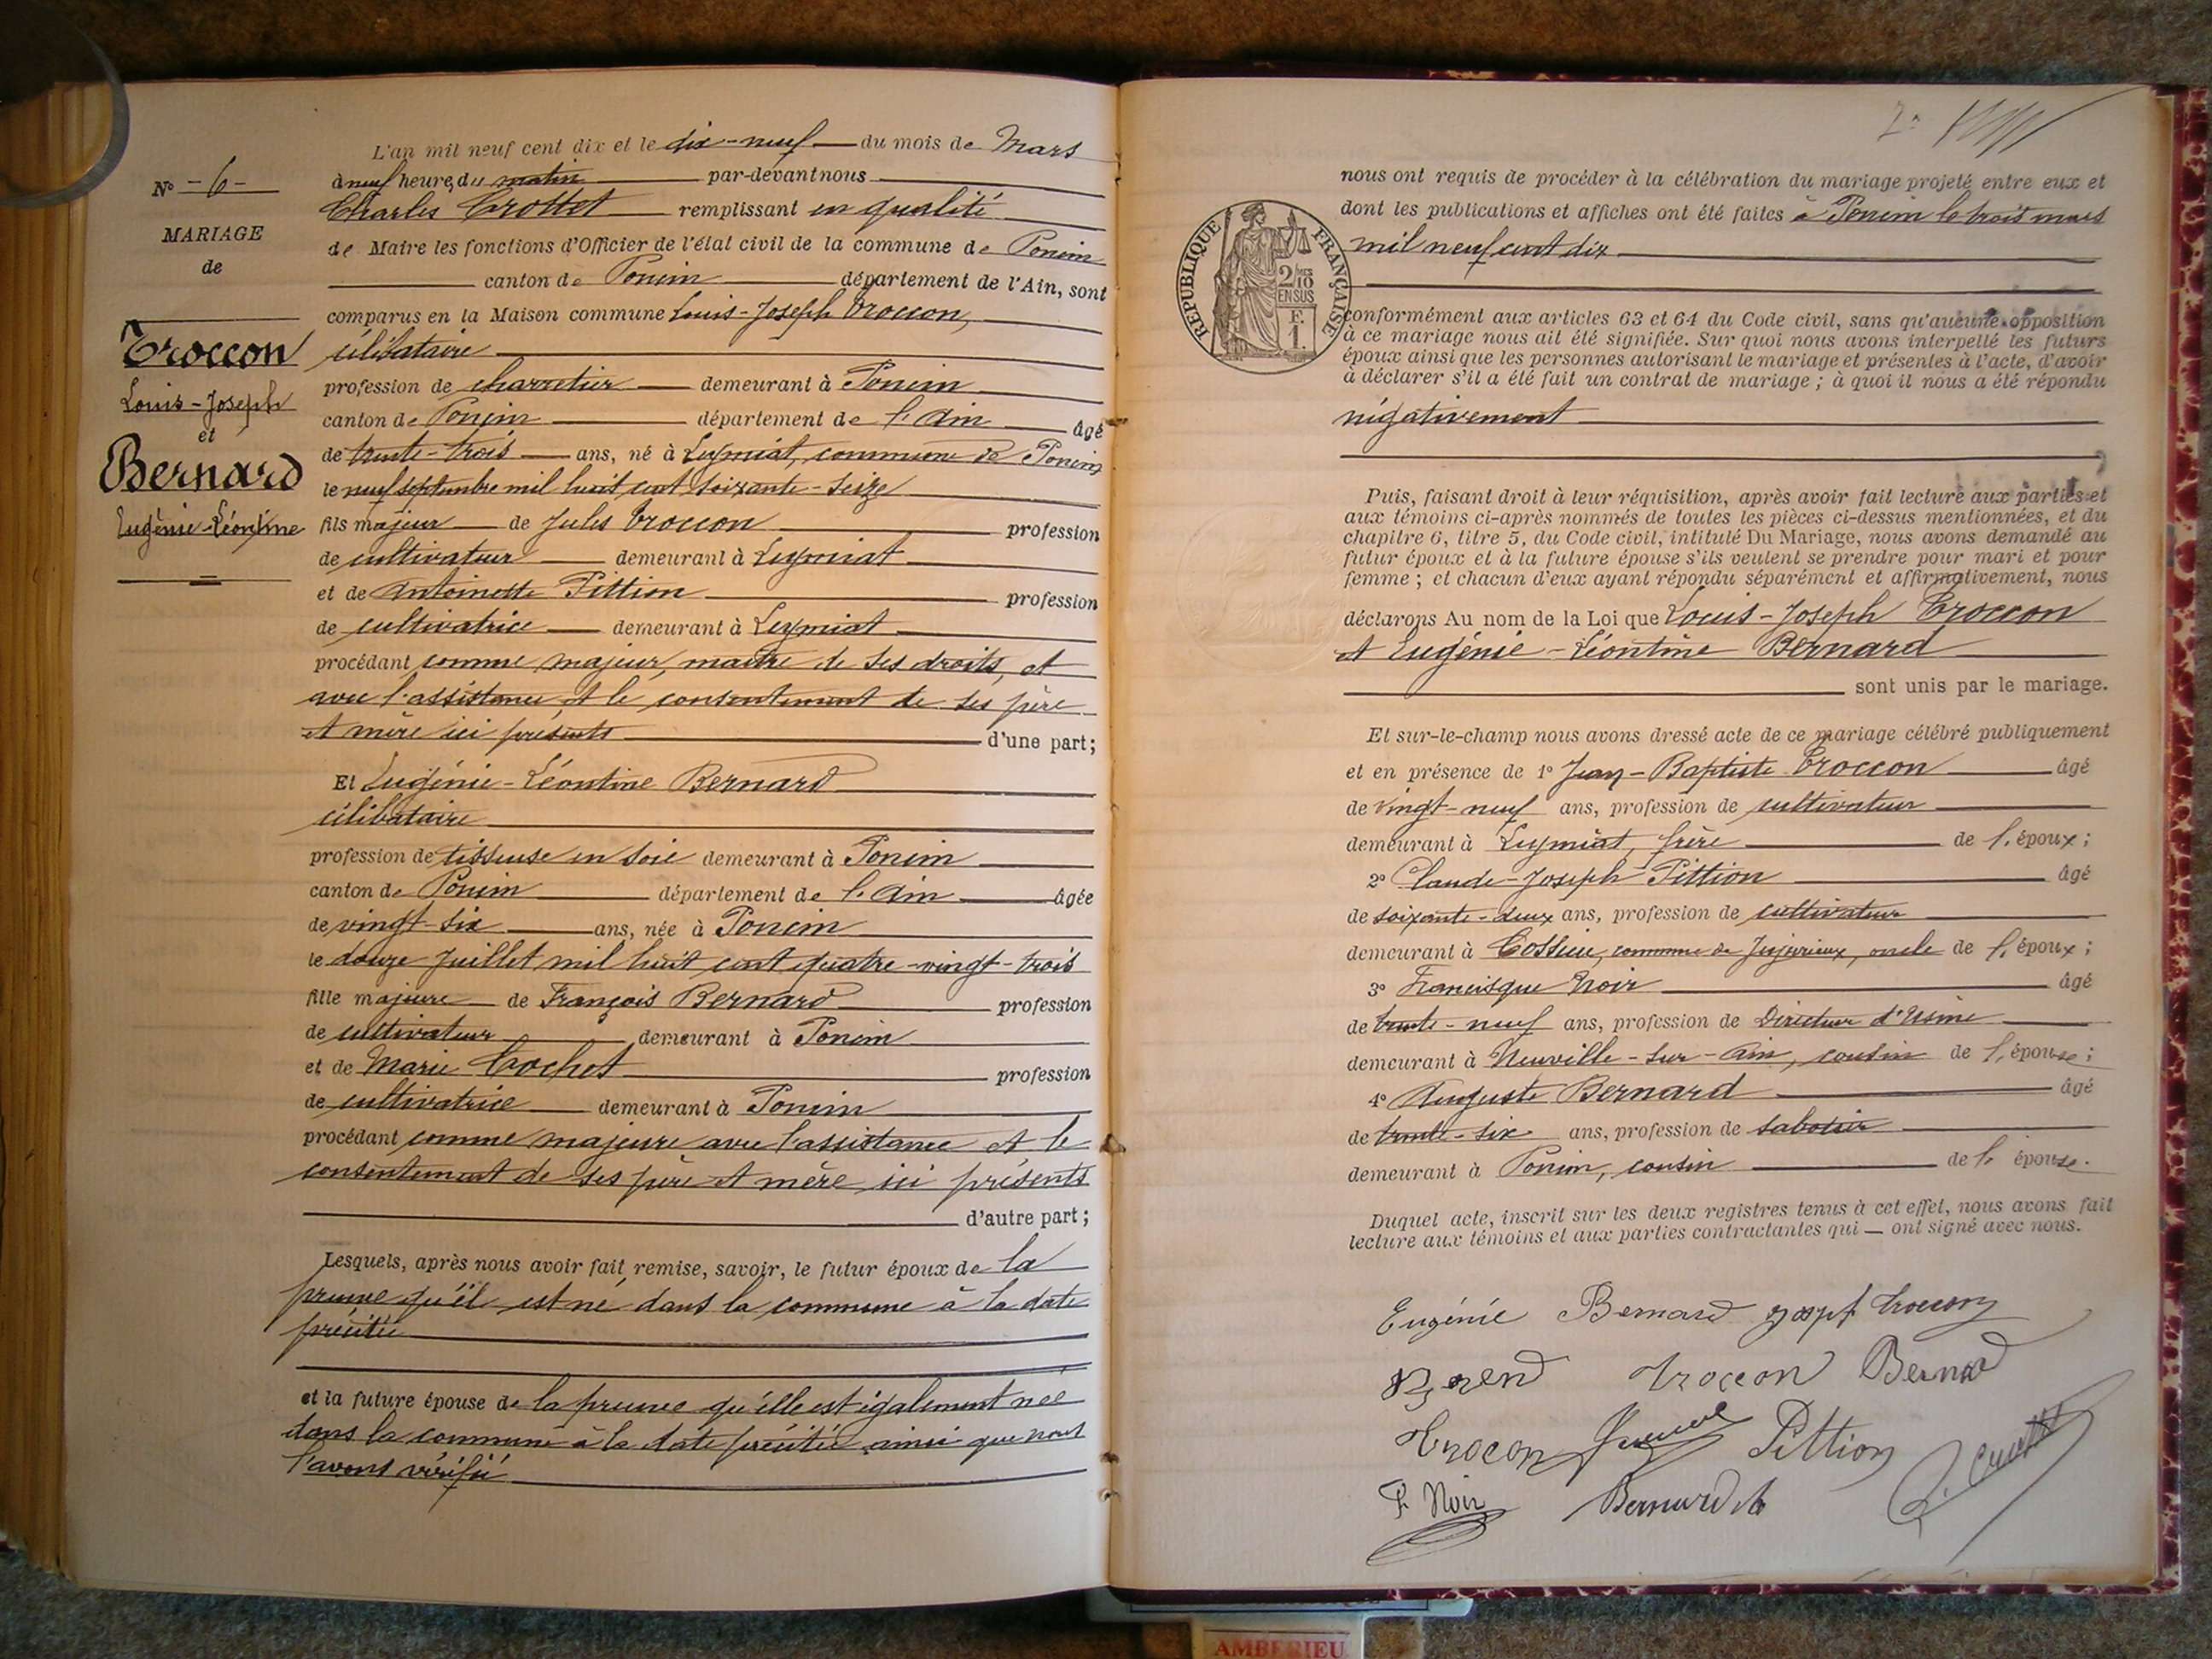 N° - 6 -
MARIAGE
de
Troccon
Louis-Joseph
et
Bernard
Eugénie-Léontine
L'an mil neuf cent dix et le dix-neuf du mois de Mars
à neuf heures du matin par-devant nous
Charles Crottet remplissant en qualité
de Maire les fonctions d'Officier de l'état civil de la commune de Poncin
canton de Poncin département de l'Ain, sont
comparus en la Maison commune Louis-Joseph Troccon,
célibataire
profession de charretier demeurant à Poncin
canton de Poncin département de l'Ain âgé
de trente-trois ans, né à Leymiat, commune de Poncin
le neuf septembre mil huit cent soixante-seize
fils majeur de Jules Troccon profession
de cultivateur demeurant à Leymiat
et de Antoinette Pittion profession
de cultivatrice demeurant à Leymiat
procédant comme majeur, maître de ses droits, et
avec l'assistance et le consentement de ses père
et mère ici présents d'une part;
Et Eugénie-Léontine Bernard
célibataire
profession de tisseuse en soie demeurant à Poncin
canton de Poncin département de l'Ain âgée
de vingt-six ans, née à Poncin
le douze Juillet mil huit cent quatre-vingt-trois
fille majeure de François Bernard profession
de cultivateur demeurant à Poncin
et de Marie Cochet profession
de cultivatrice demeurant à Poncin
procédant comme majeure avec l'assistance et le
consentement de ses père et mère ici présents
d'autre part;
Lesquels, après nous avoir fait remise, savoir, le futur époux de la
preuve qu'il est né dans la commune à la date
précitée
et la future épouse de la preuve qu'elle est également née
dans la commune à la date précitée ainsi que nous
l'avons vérifié
nous ont requis de procéder à la célébration du mariage projeté entre eux et
dont les publications et affiches ont été faites à Poncin le trois mars
mil neuf cent dix
RÉPUBLIQUE FRANÇAISE
2/10
EN SUS
F.
1.
conformément aux articles 63 et 64 du Code civil, sans qu'aucune opposition
à ce mariage nous ait été signifiée. Sur quoi nous avons interpellé les futurs
époux ainsi que les personnes autorisant le mariage et présentes à l'acte, d'avoir
à déclarer s'il a été fait un contrat de mariage ; à quoi il nous a été répondu
négativement
Puis, faisant droit à leur réquisition, après avoir fait lecture aux parties et
aux témoins ci-après nommés de toutes les pièces ci-dessus mentionnées, et du
chapitre 6, titre 5, du Code civil, intitulé Du Mariage, nous avons demandé au
futur époux et à la future épouse s'ils veulent se prendre pour mari et pour
femme ; et chacun d'eux ayant répondu séparément et affirmativement, nous
déclarons Au nom de la Loi que Louis-Joseph Troccon
et Eugénie-Léontine Bernard
sont unis par le mariage.
Et sur-le-champ nous avons dressé acte de ce mariage célébré publiquement
et en présence de 1° Jean-Baptiste Troccon âgé
de vingt-neuf ans, profession de cultivateur
demeurant à Leymiat, frère de l'époux;
2° Claude-Joseph Pittion âgé
de soixante-deux ans, profession de cultivateur
demeurant à Cossieu, commune de Jujurieux, oncle de l'époux;
3° Francisque Noir âgé
de trente-neuf ans, profession de Directeur d'Usine
demeurant à Neuville-sur-Ain, cousin de l'épouse;
4° Auguste Bernard âgé
de trente-six ans, profession de sabotier
demeurant à Poncin, cousin de l'épouse.
Duquel acte, inscrit sur les deux registres tenus à cet effet, nous avons fait
lecture aux témoins et aux parties contractantes qui — ont signé avec nous.
Eugénie Bernard Joseph Troccon
Troccon Bernard
Trocon Pittion
F. Noir Bernard
AMBERIEU